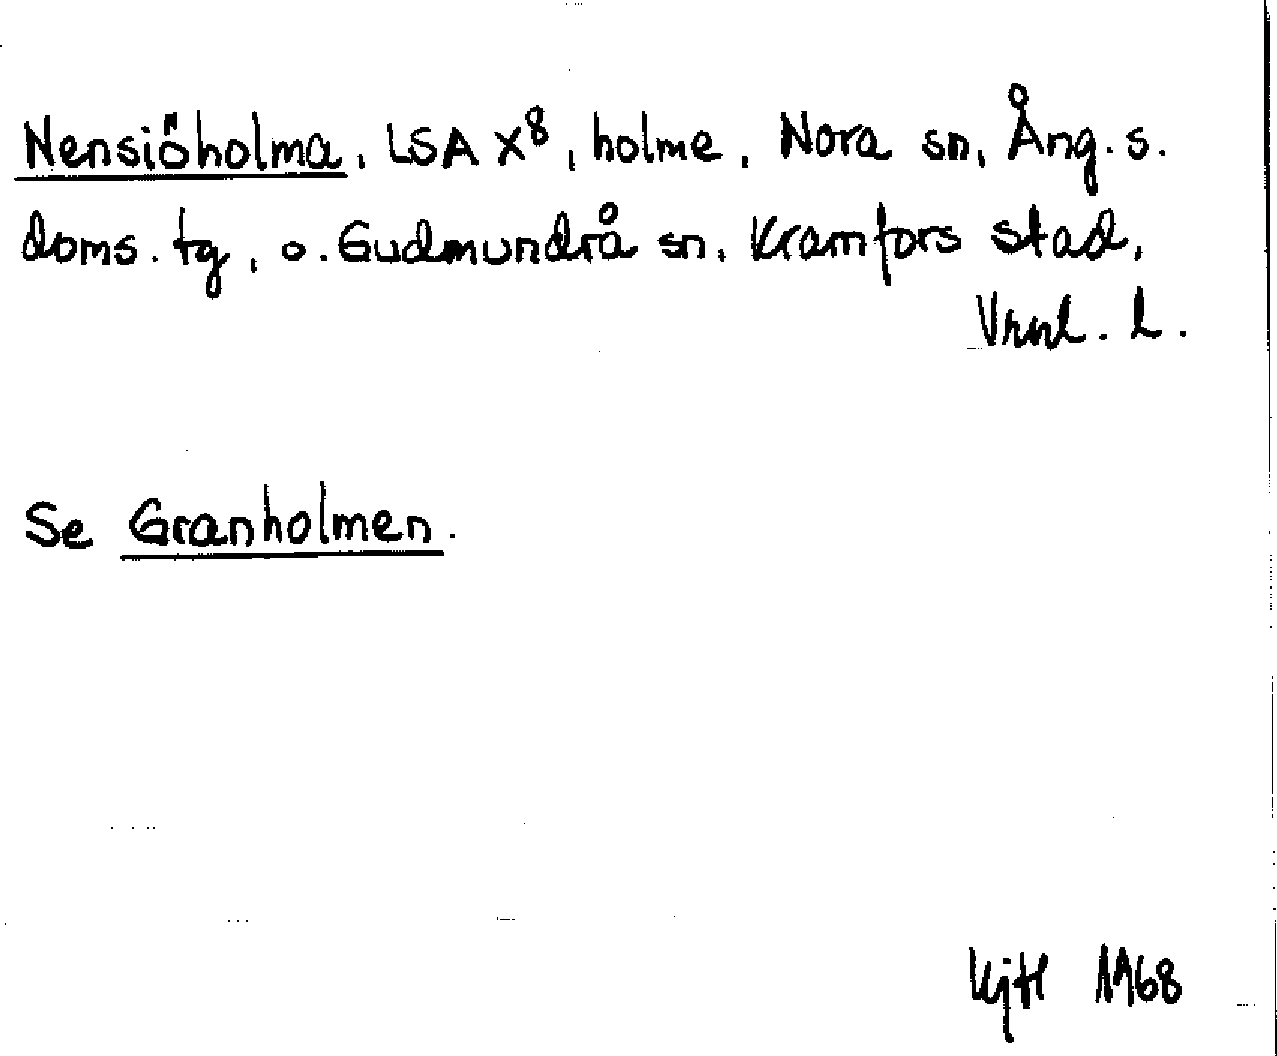 Nensiöholma, LSA X⁸, holme, Nora sn, Ång. s.
doms. tg, o. Gudmundrå sn, Kramfors stad,
Vrnl. l.
Se Granholmen.
1968